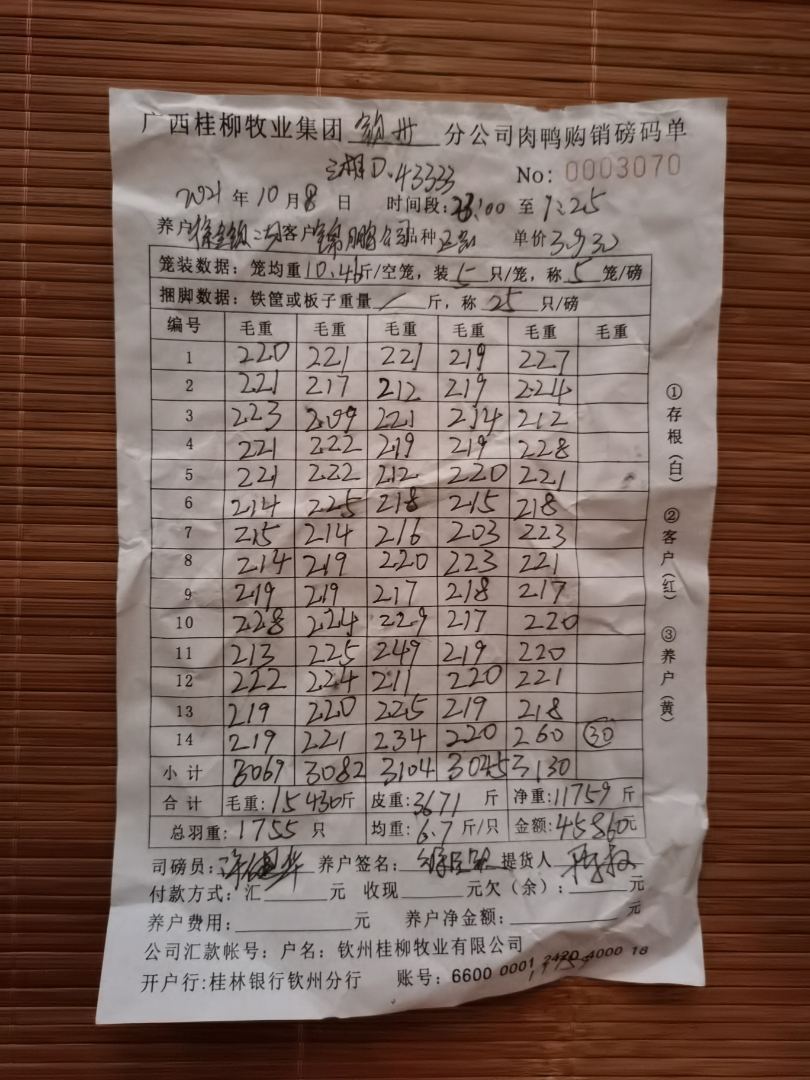 广西桂柳牧业集团 钦州 分公司肉鸭购销磅码单
湘D.43333 No: 0003070
2021 年 10 月 8 日 时间段: 23:00 至 1:25
养户 客户 锦鹏公司 品种 单价 3.930
笼装数据: 笼均重 10.46 斤/空笼, 装 5 只/笼, 称 5 笼/磅
捆脚数据: 铁筐或板子重量 / 斤, 称 25 只/磅
编号 毛重 毛重 毛重 毛重 毛重 毛重
1 220 221 221 219 227
2 221 217 212 219 224
3 223 209 221 214 212
4 221 222 219 219 228
5 221 222 212 220 221
6 214 225 218 215 218
7 215 214 216 203 223
8 214 219 220 223 221
9 219 219 217 218 217
10 228 224 229 217 220
11 213 225 249 219 220
12 222 224 211 220 221
13 219 220 225 219 218
14 219 221 234 220 260 30
小计 3069 3082 3104 3045 3130
合计 毛重: 15430斤 皮重: 3671 斤 净重: 11759 斤
总羽重: 1755 只 均重: 6.7 斤/只 金额: 45860元
司磅员: 养户签名: 提货人
付款方式: 汇 元 收现 元欠(余): 元
养户费用: 元 养户净金额: 元
公司汇款帐号: 户名: 钦州桂柳牧业有限公司
开户行: 桂林银行钦州分行 账号: 6600 0001 2420 4000 18
①存根(白) ②客户(红) ③养户(黄)